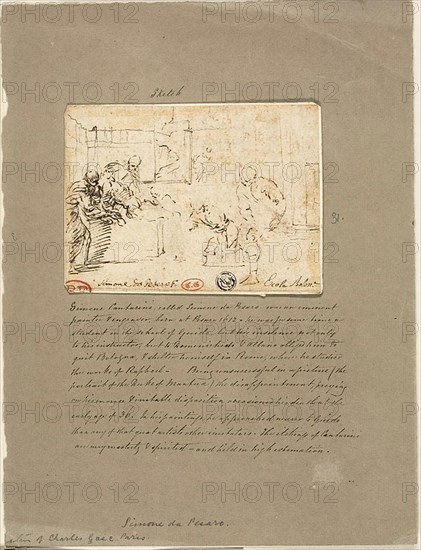 Sketch
Simone da Pesaro f.
Simone Cantarini, called Simone da Pesaro, was an eminent
painter & engraver, born at Pesaro 1612 – he was for some time a
student in the school of Guido, but his insolence not only
to his instructor, but to Domenichino & Albano obliged him to
quit Bologna, & shelter himself in Rome, where he studied
the works of Raphael –. Being unsuccessful in a picture (the
portrait of the Duke of Mantua) the disappointment preying
disposition, occasioned his death at the
early age of 36. his paintings approached nearer to Guido's
than any of that great artist's other imitators. The etchings of Cantarini
are in a masterly & spirited – and held in high estimation.
Simone da Pesaro.
of Charles Gasc. Paris.
PHOTO 12